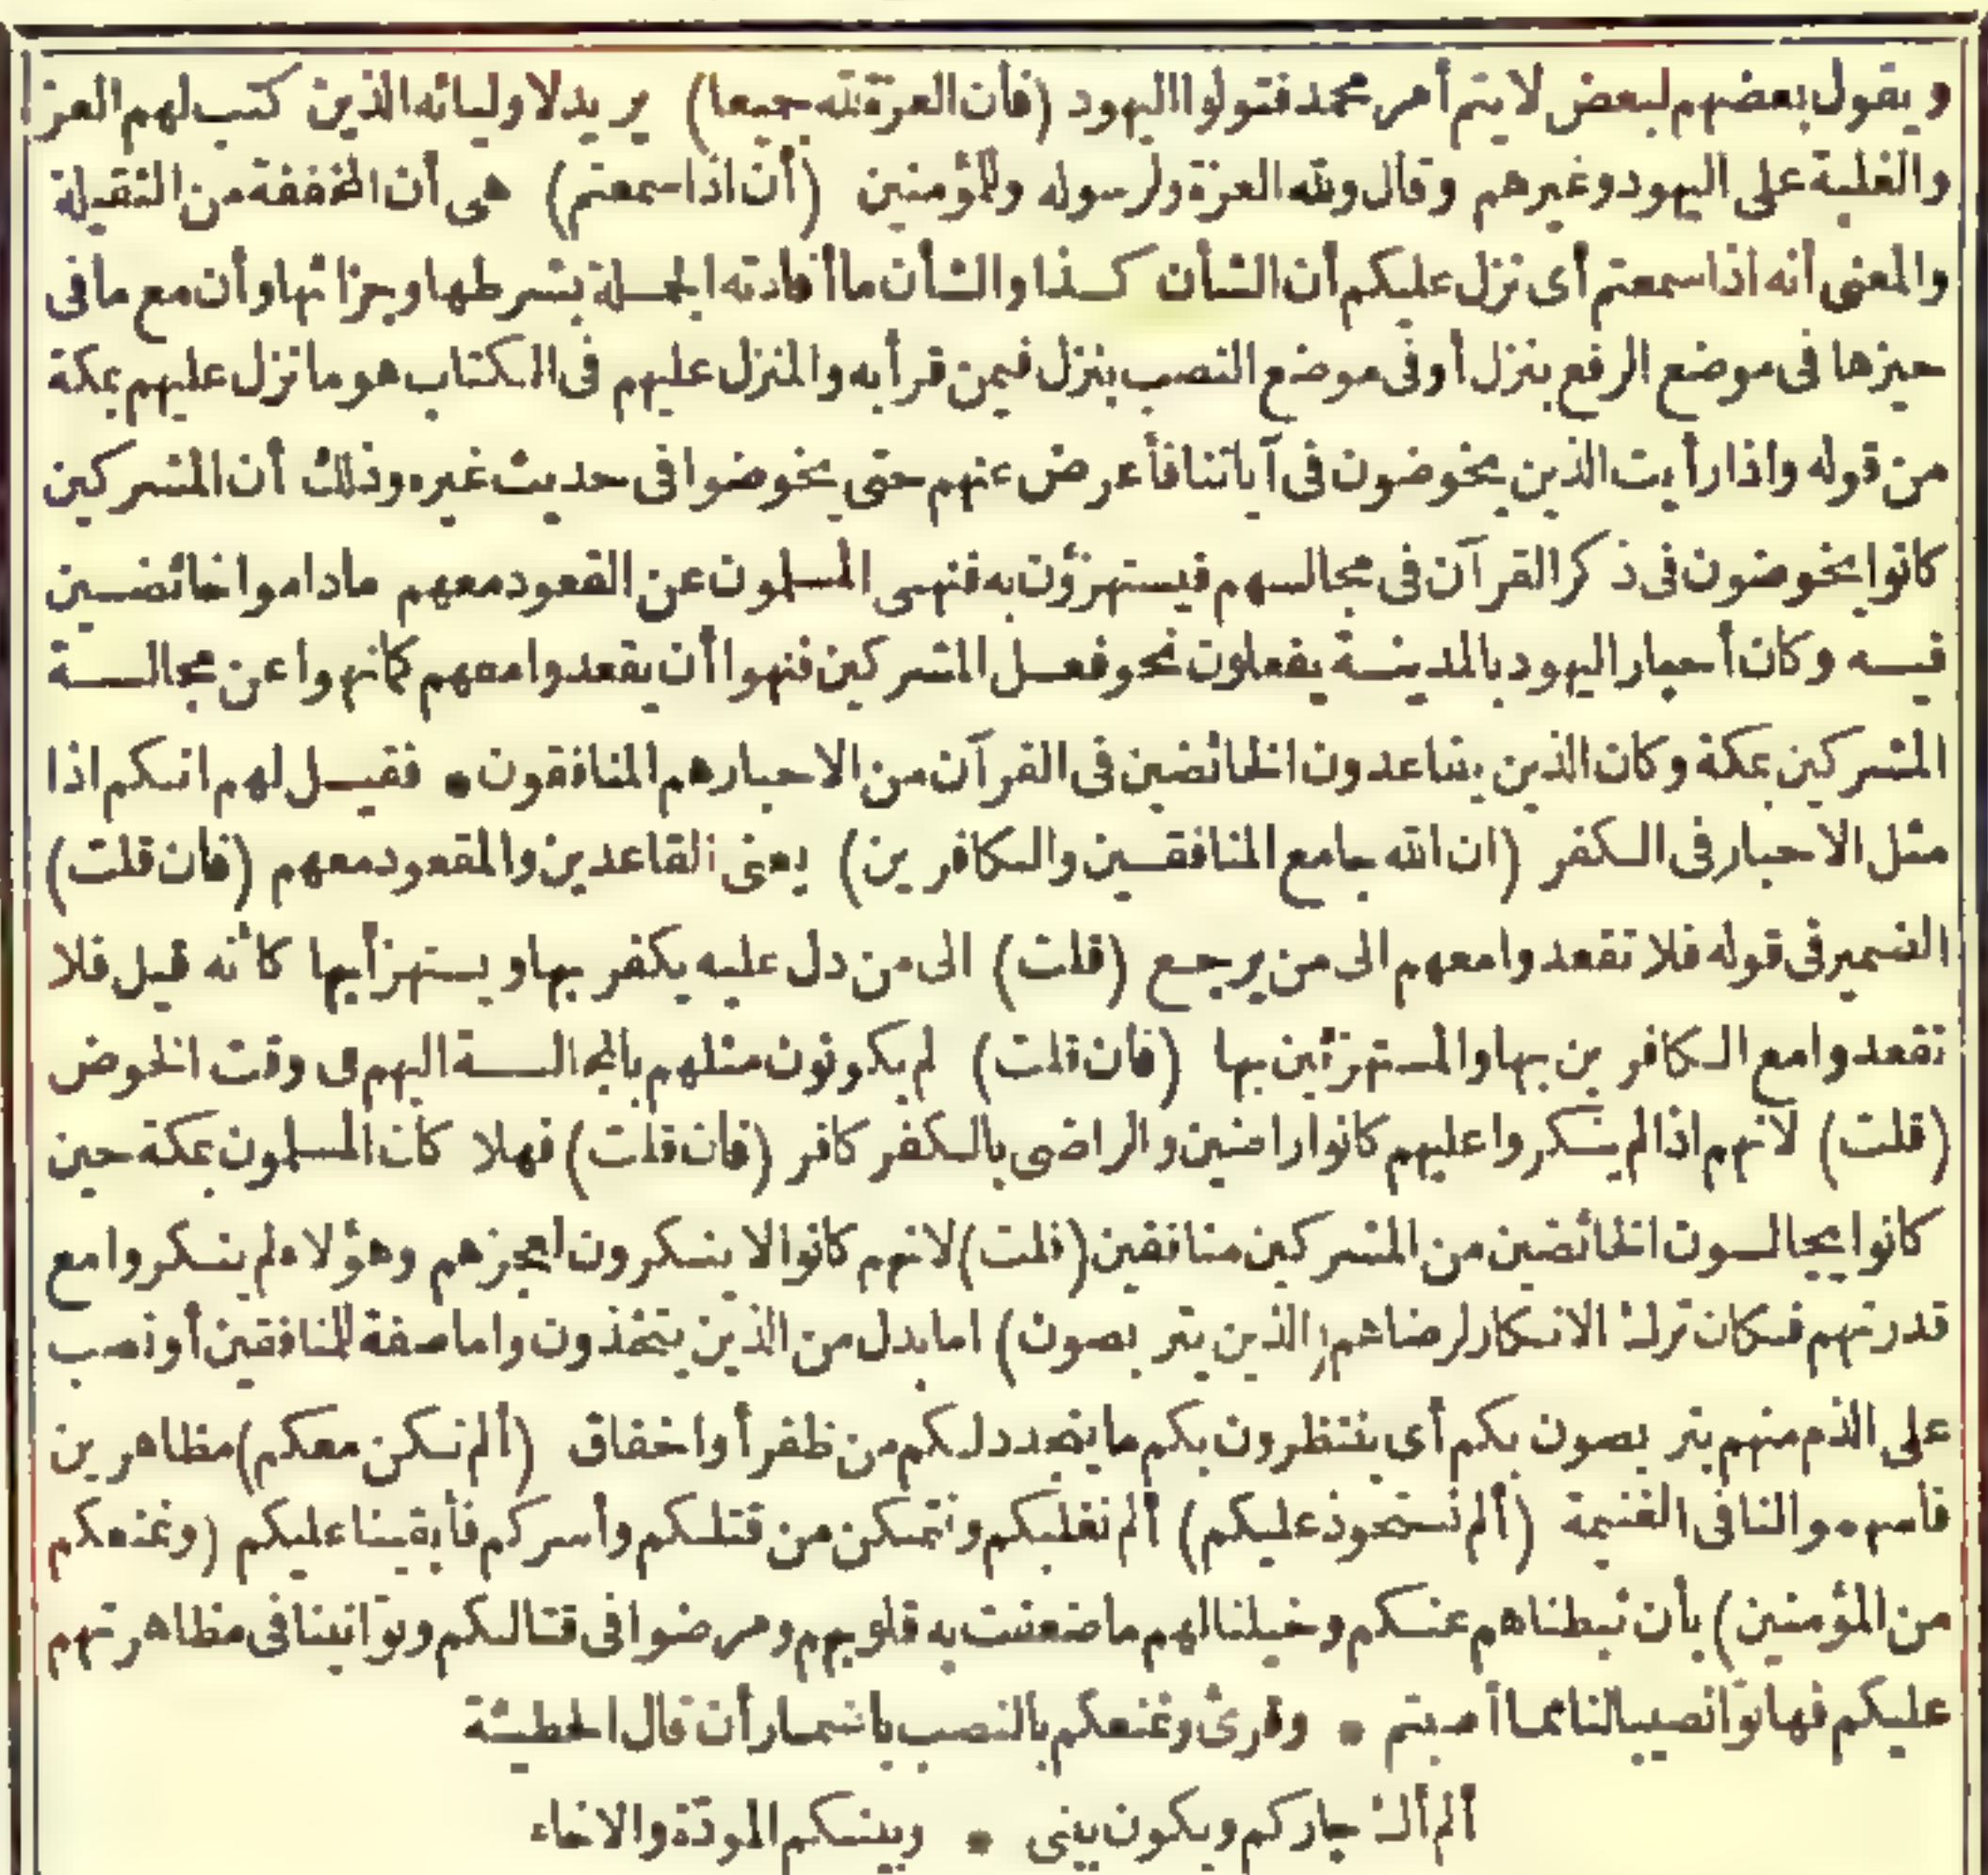 ويقول بعضهم لبعض لا يتم أمر محمد فتولوا اليهود (فان العزة لله جميعا) يريد لاوليائه الذين كتب لهم العز
والغلبة على اليهود وغيرهم وقال ولله العزة ولرسوله وللمؤمنين (أن اذا سمعتم) هى أن المخففة من الثقيلة
والمعنى أنه اذا سمعتم أى نزل عليكم أن الشأن كذا والشأن ما أفادته الجملة بشرطها وجزائها وأن مع ما فى
حيزها فى موضع الرفع بنزل أو فى موضع النصب بنزل فيمن قرأ به والمنزل عليهم فى الكتاب هو ما نزل عليهم بمكة
من قوله واذا رأيت الذين يخوضون فى آياتنا فأعرض عنهم حتى يخوضوا فى حديث غيره وذلك أن المشركين
كانوا يخوضون فى ذكر القرآن فى مجالسهم فيستهزؤن به فنهى المسلمون عن القعود معهم ما داموا خائضين
فيه وكان أحبار اليهود بالمدينة يفعلون نحو فعل المشركين فنهوا أن يقعدوا معهم كما نهوا عن مجالسة
المشركين بمكة وكان الذين يقاعدون الخائضين فى القرآن من الاحبار هم المنافقون • فقيل لهم انكم اذا
مثل الاحبار فى الكفر (ان الله جامع المنافقين والكافرين) يعنى القاعدين والمقعود معهم (فان قلت)
الضمير فى قوله فلا تقعدوا معهم الى من يرجع (قلت) الى من دل عليه يكفر بها ويستهزأ بها كأنه قيل فلا
تقعدوا مع الكافرين بها والمستهزئين بها (فان قلت) لم يكونون مثلهم بالمجالسة اليهم فى وقت الخوض
(قلت) لانهم اذا لم ينكروا عليهم كانوا راضين والراضى بالكفر كافر (فان قلت) فهلا كان المسلمون بمكة حين
كانوا يجالسون الخائضين من المشركين منافقين (قلت) لانهم كانوا لا ينكرون لعجزهم وهؤلاء لم ينكروا مع
قدرتهم فكان ترك الانكار لرضاهم (الذين يتربصون) اما بدل من الذين يتخذون واما صفة للمنافقين أو نصب
على الذم منهم يتربصون بكم أى ينتظرون بكم ما يتجدد لكم من ظفر أو اخفاق (ألم نكن معكم) مظاهرين
فأسهموا لنا فى الغنيمة (ألم نستحوذ عليكم) ألم نغلبكم ونتمكن من قتلكم وأسركم فأبقينا عليكم (ونمنعكم
من المؤمنين) بأن ثبطناهم عنكم وخيلنا لهم ما ضعفت به قلوبهم ومرضوا فى قتالكم وتوانينا فى مظاهرتهم
عليكم فهاتوا نصيبا لنا مما أصبتم • وقرئ ونمنعكم بالنصب باضمار أن قال الحطيئة
ألم أك جاركم ويكون بينى • وبينكم المودّة والاخاء